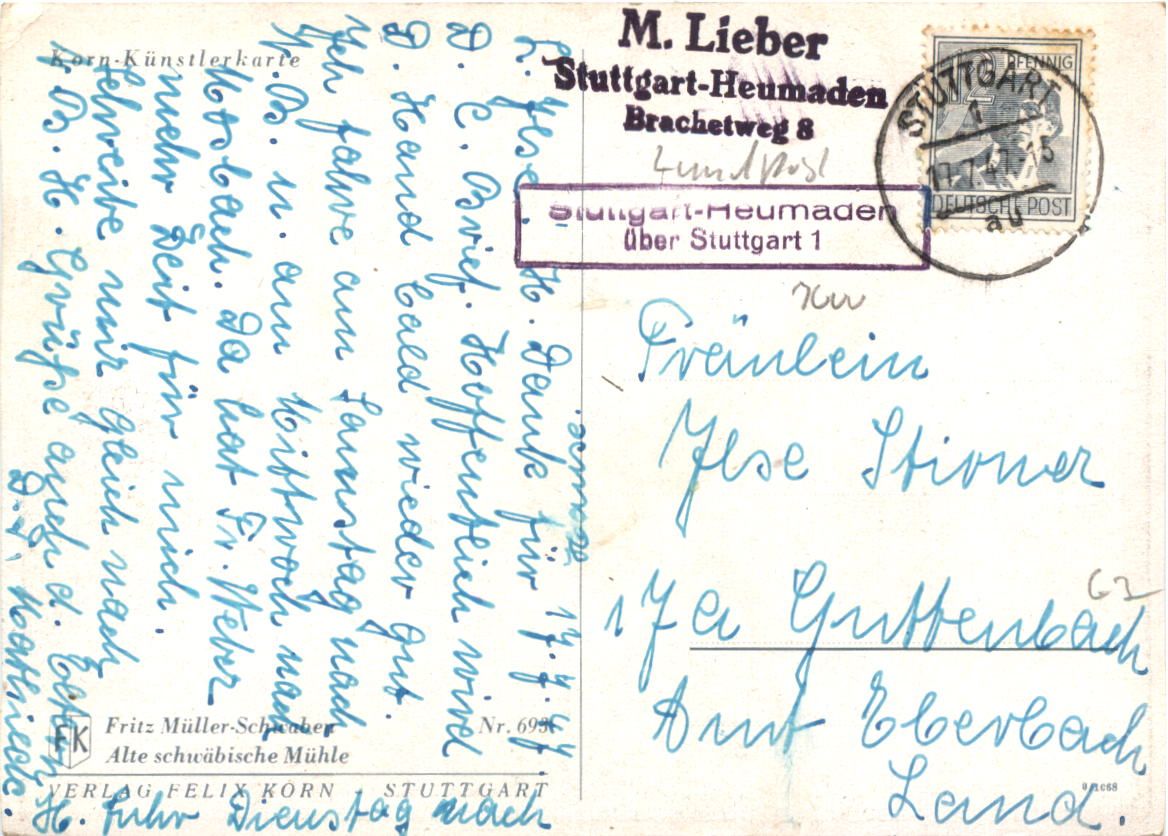 Korn-Künstlerkarte
M. Lieber
Stuttgart-Heumaden
Brachetweg 8
Landpost
Stuttgart-Heumaden
über Stuttgart 1
12 PFENNIG
DEUTSCHE POST
STUTTGART
1
17.7.47.-15
au
17.7.47.
L. Ilse! H. Dank für
D. l. Brief. Hoffentlich wird
D. Hand bald wieder gut.
Ich fahre am Samstag nach
B. u. am Mittwoch nach
Mosbach. Da hat Fr. Weber
mehr Zeit für mich.
Schreibe mir gleich nach
B. H. Grüße auch d. Eltern
D. L.
H. fuhr Dienstag nach
Fräulein
Ilse Stirner
17a Guttenbach
Amt Eberbach
Land.
FK
Fritz Müller-Schwaben
Nr. 693
Alte schwäbische Mühle
VERLAG FELIX KORN - STUTTGART